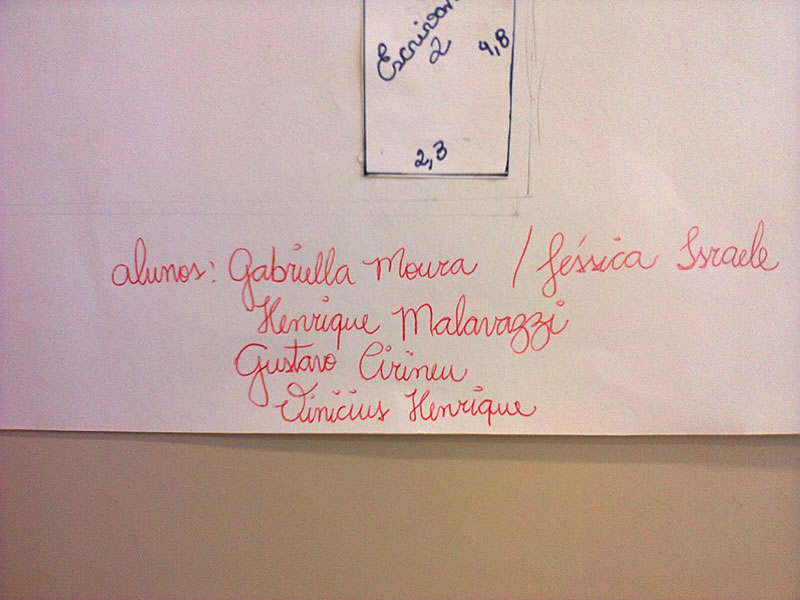 2
4,8
2,3
alunos: Gabriella Moura / Jéssica Israele
Henrique Malavazzi
Gustavo Cirineu
Vinicius Henrique